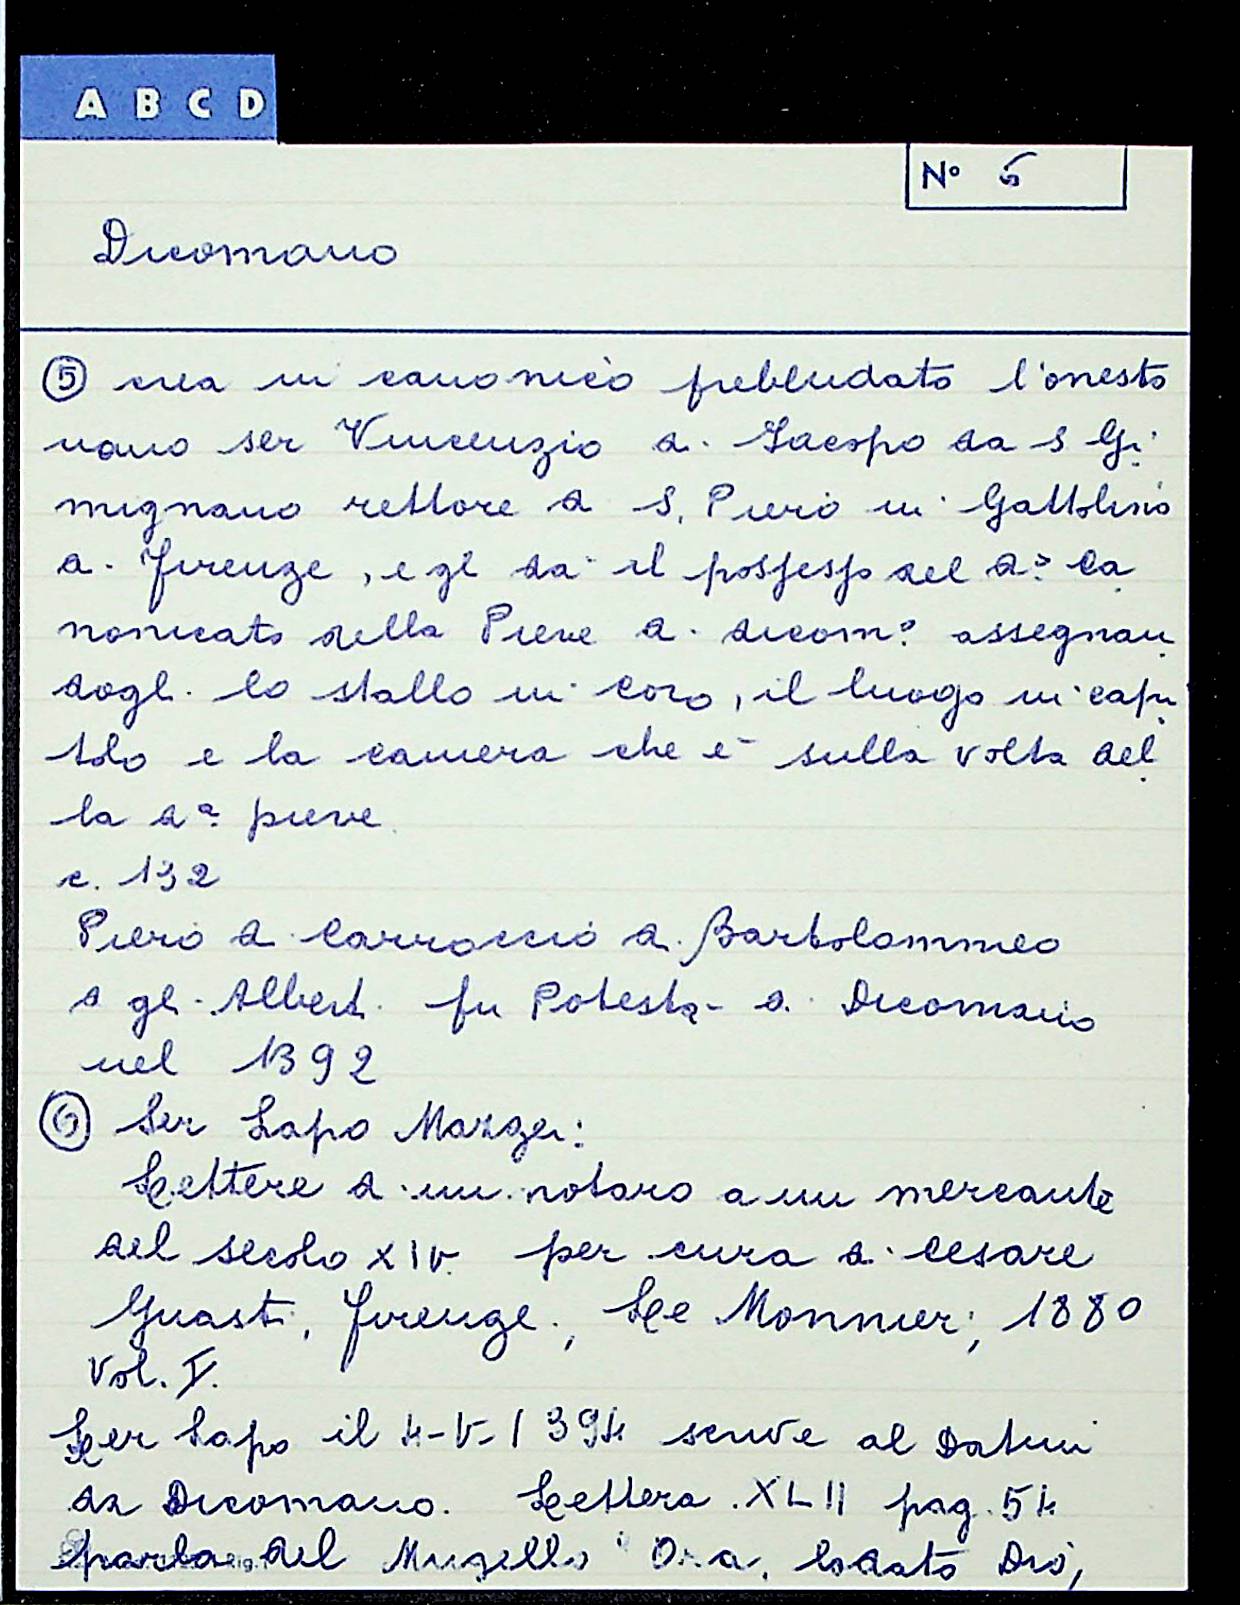 A B C D
N° 5
Dicomano
⑤ crea in canonico prebendato l'onesto
uomo ser Vincenzio d. Jacopo da S Gi
mignano rettore d S. Piero in Gattolino
d. Firenze, e gl da il possesso del d.° Ca
nonicato della Pieve d. dicom.° assegnan
dogl. lo stallo in coro, il luogo in capi
tolo e la camera che è sulla volta del
la d.ª pieve
c. 132
Piero d Carroccio d. Bartolommeo
d gl. Albert. fu Potestà d. Dicomano
nel 1392
⑥ Ser Lapo Mazzei:
Lettere d. un notaro a un mercante
del secolo XIV per cura d. Cesare
Guasti, Firenze, Le Monnier, 1880
Vol. I.
Ser Lapo il 4-V-1394 scrive al Datini
da Dicomano. Lettera XLII pag. 54
parla del Mugello Ora, lodato Dio,